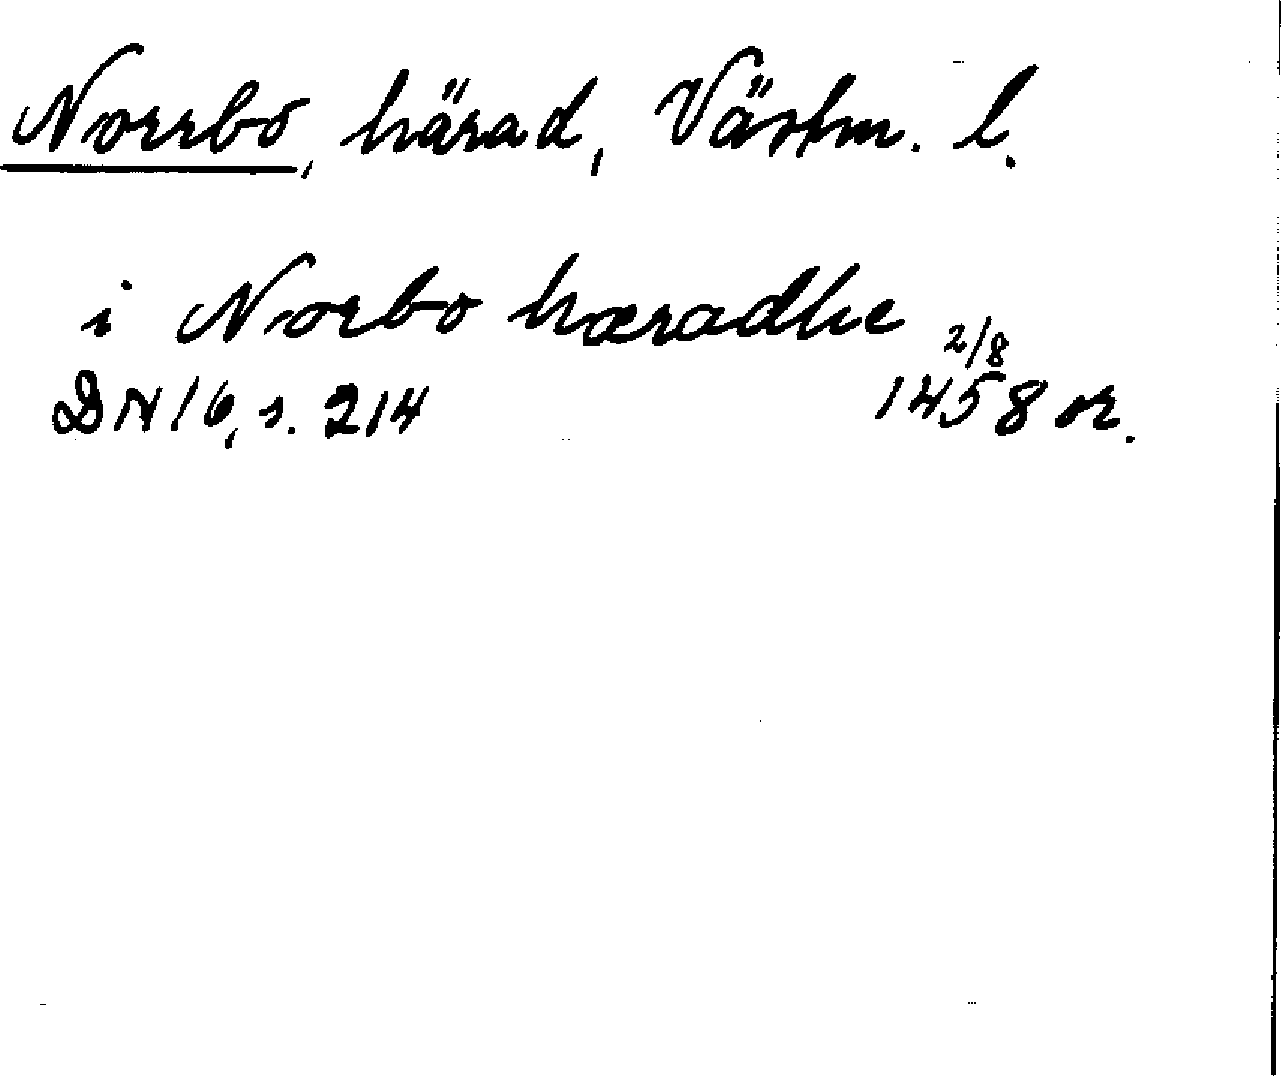 Norrbo, härad, Västm. l.
i Norbo hæradhe
DN 16, s. 214 2/8 1458 or.